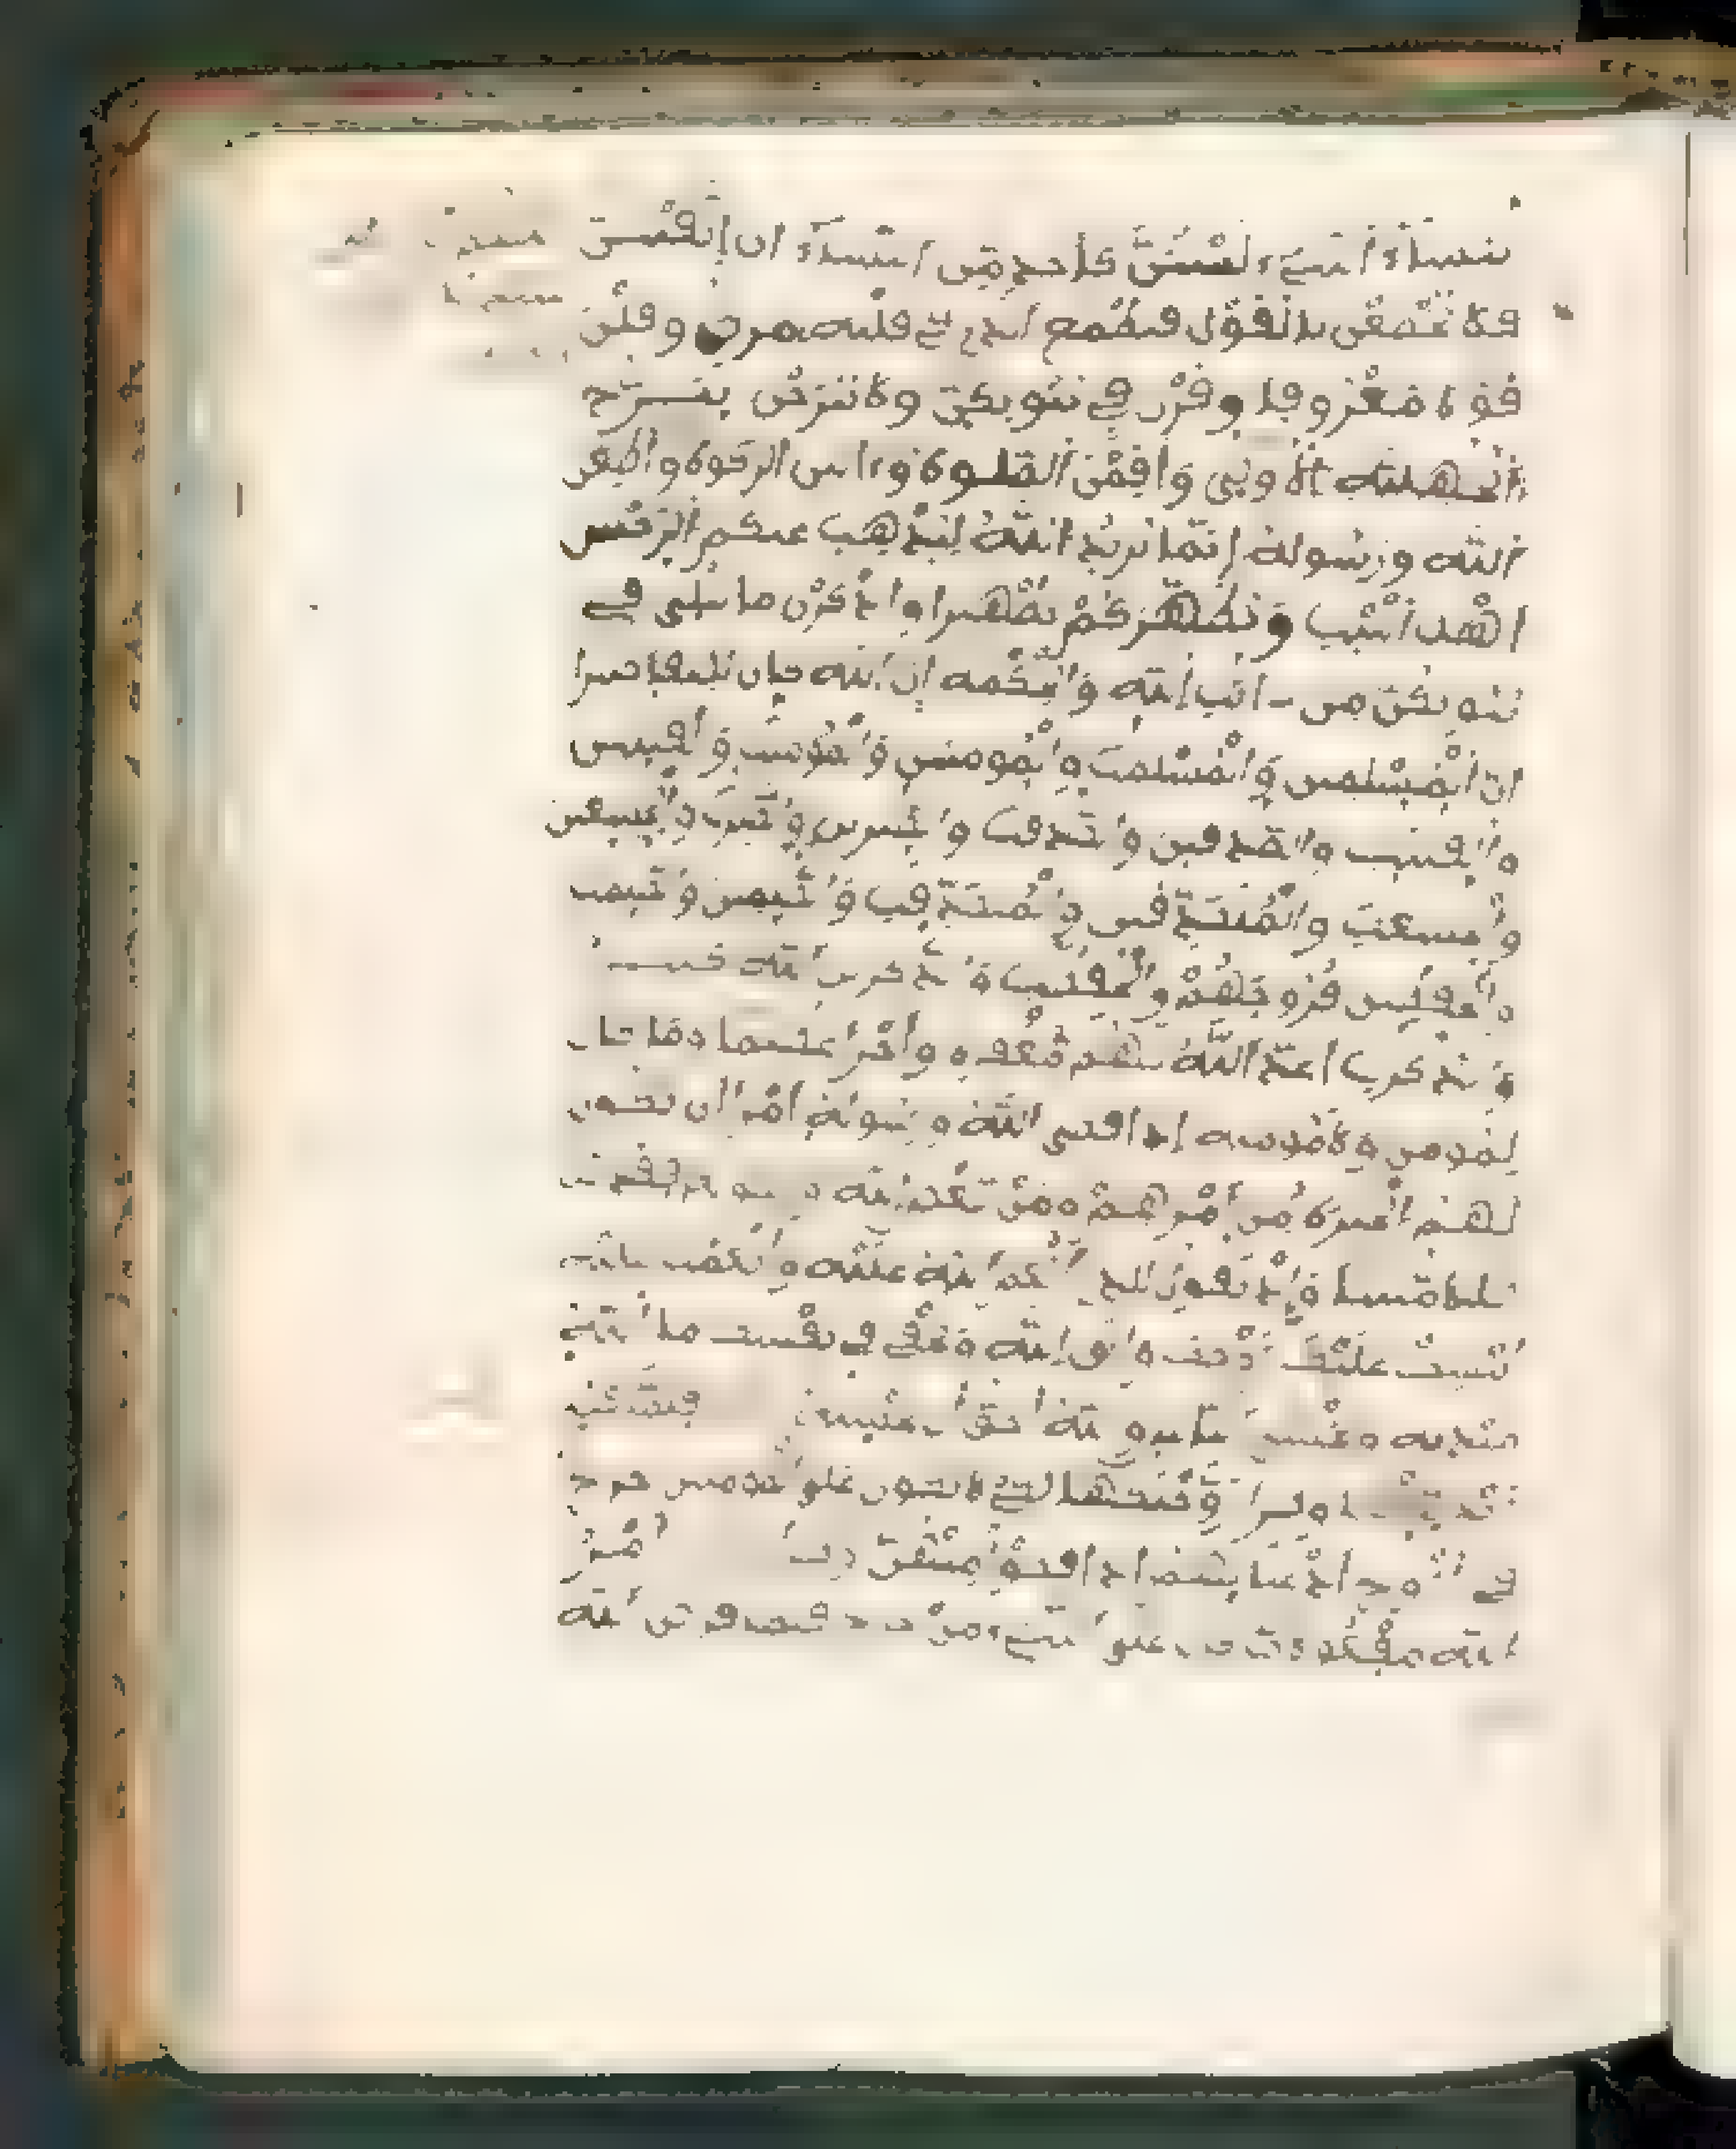 نساء النبيء لستن كأحد من النساء ان اتقيتن
فلا تخضعن بالقول فيطمع الذي في قلبه مرض وقلن
قولا معروفا وقرن في بيوتكن ولا تبرجن تبرج
الجهلية الاولى وأقمن الصلوة وءاتين الزكوة وأطعن
الله ورسوله إنما يريد الله ليذهب عنكم الرجس
اهل البيت ويطهركم تطهيرا واذكرن ما يتلى في
بيوتكن من ءايت الله والحكمة إن الله كان لطيفا خبيرا
ان المسلمين والمسلمت والمومنين والمومنت والقنتين
والقنتت والصدقين والصدقت والصبرين والصبرت والخشعين
والخشعت والمتصدقين والمتصدقت والصيمين والصيمت
والحفظين فروجهم والحفظت والذكرين الله كثيرا
والذكرت اعد الله لهم مغفرة وأجرا عظيما وما كان
لمومن ولا مومنة إذا قضى الله ورسوله امرا ان تكون
لهم الخيرة من أمرهم ومن يعص الله ورسوله فقد ضل
ضللا مبينا وإذ تقول للذي أنعم الله عليه وأنعمت عليه
أمسك عليك زوجك واتق الله وتخفي في نفسك ما الله
مبديه وتخشى الناس والله احق أن تخشيه فلما قضى
زيد منها وطرا زوجنكها لكي لا يكون على المومنين حرج
في أزوج ادعيايهم إذا قضوا منهن وطرا أمر
الله مفعولا ما كان على النبيء من حرج فيما فرض الله